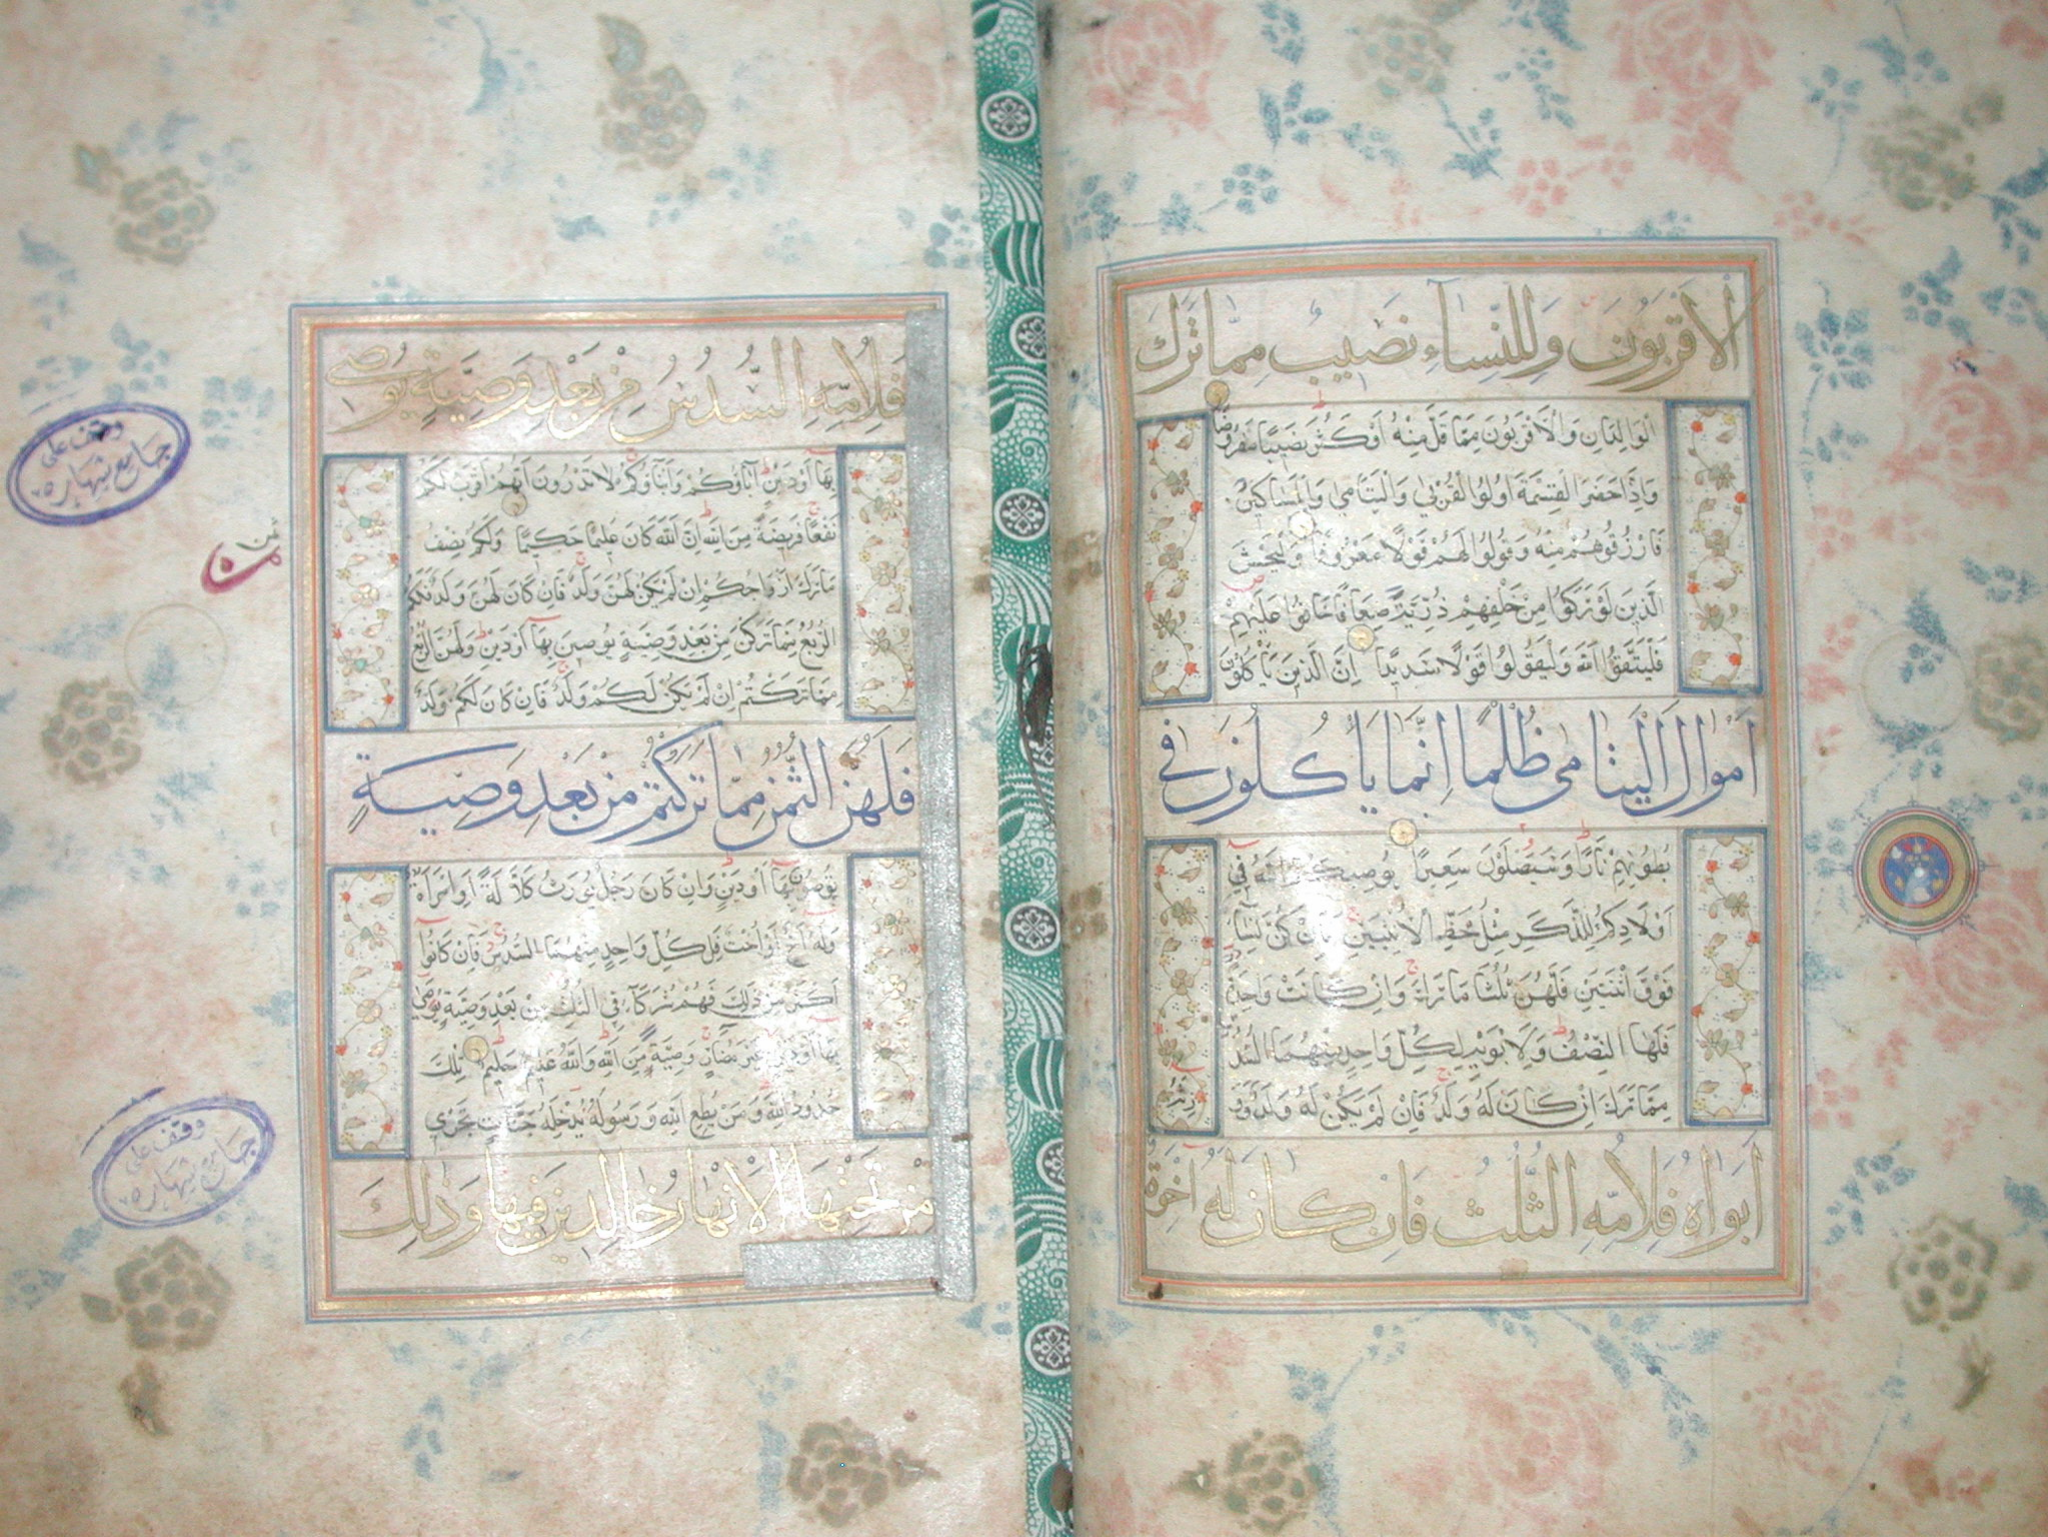 الاقربون وللنساء نصيب مما ترك
الوالدان والاقربون مما قل منه او كثر نصيبا مفروضا
واذا حضر القسمة اولوا القربى واليتامى والمساكين
فارزقوهم منه وقولوا لهم قولا معروفا وليخش
الذين لو تركوا من خلفهم ذرية ضعافا خافوا عليهم
فليتقوا الله وليقولوا قولا سديدا ان الذين ياكلون
اموال اليتامى ظلما انما ياكلون في
بطونهم نارا وسيصلون سعيرا يوصيكم الله في
اولادكم للذكر مثل حظ الانثيين فان كن نساء
فوق اثنتين فلهن ثلثا ما ترك وان كانت واحدة
فلها النصف ولابويه لكل واحد منهما السدس
مما ترك ان كان له ولد فان لم يكن له ولد وورثه
ابواه فلامه الثلث فان كان له اخوة
فلامه السدس من بعد وصية يوصي
بها او دين اباؤكم وابناؤكم لا تدرون ايهم اقرب لكم
نفعا فريضة من الله ان الله كان عليما حكيما ولكم نصف
ما ترك ازواجكم ان لم يكن لهن ولد فان كان لهن ولد فلكم
الربع مما تركن من بعد وصية يوصين بها او دين ولهن الربع
مما تركتم ان لم يكن لكم ولد فان كان لكم ولد
فلهن الثمن مما تركتم من بعد وصية
توصون بها او دين وان كان رجل يورث كلالة او امراة
وله اخ او اخت فلكل واحد منهما السدس فان كانوا
اكثر من ذلك فهم شركاء في الثلث من بعد وصية يوصى
بها او دين غير مضار وصية من الله والله عليم حليم تلك
حدود الله ومن يطع الله ورسوله يدخله جنات تجري
من تحتها الانهار خالدين فيها وذلك
ثمن
وقف على
جامع شهاره
وقف على
جامع شهاره